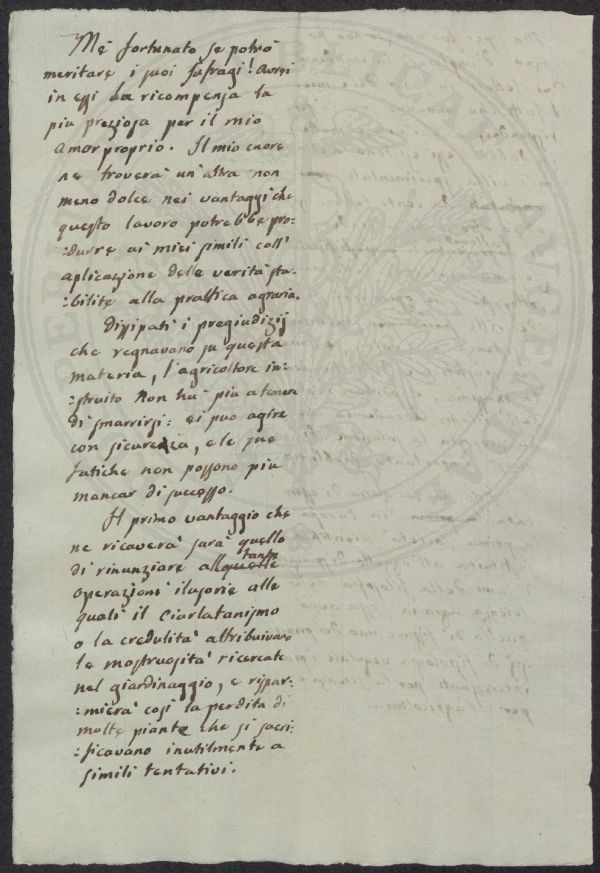 Me fortunato se potrò
meritare i suoi sufragi! Avrei
in essi la ricompensa la
piu preziosa per il mio
amor proprio. Il mio cuore
ne troverà un'altra non
meno dolce nei vantaggi che
questo lavoro potrebbe pro=
=durre ai miei simili coll'
aplicazione delle verità sta=
=bilite alla prattica agraria.
Dissipati i pregiudizij
che regnavano su questa
materia, l'agricoltore in=
=struito non ha più a temere
di smarrirsi: ei può agire
con sicurezza, e le sue
fatiche non possono più
mancar di successo.
Il primo vantaggio che
ne ricaverà sarà quello
di rinunziare a tante
operazioni ilusorie alle
quali il Ciarlatanismo
o la credulità attribuivano
le mostruosità ricercate
nel giardinaggio, e rispar=
=mierà così la perdita di
molte piante che si sacri=
=ficavano inutilmente a
simili tentativi.